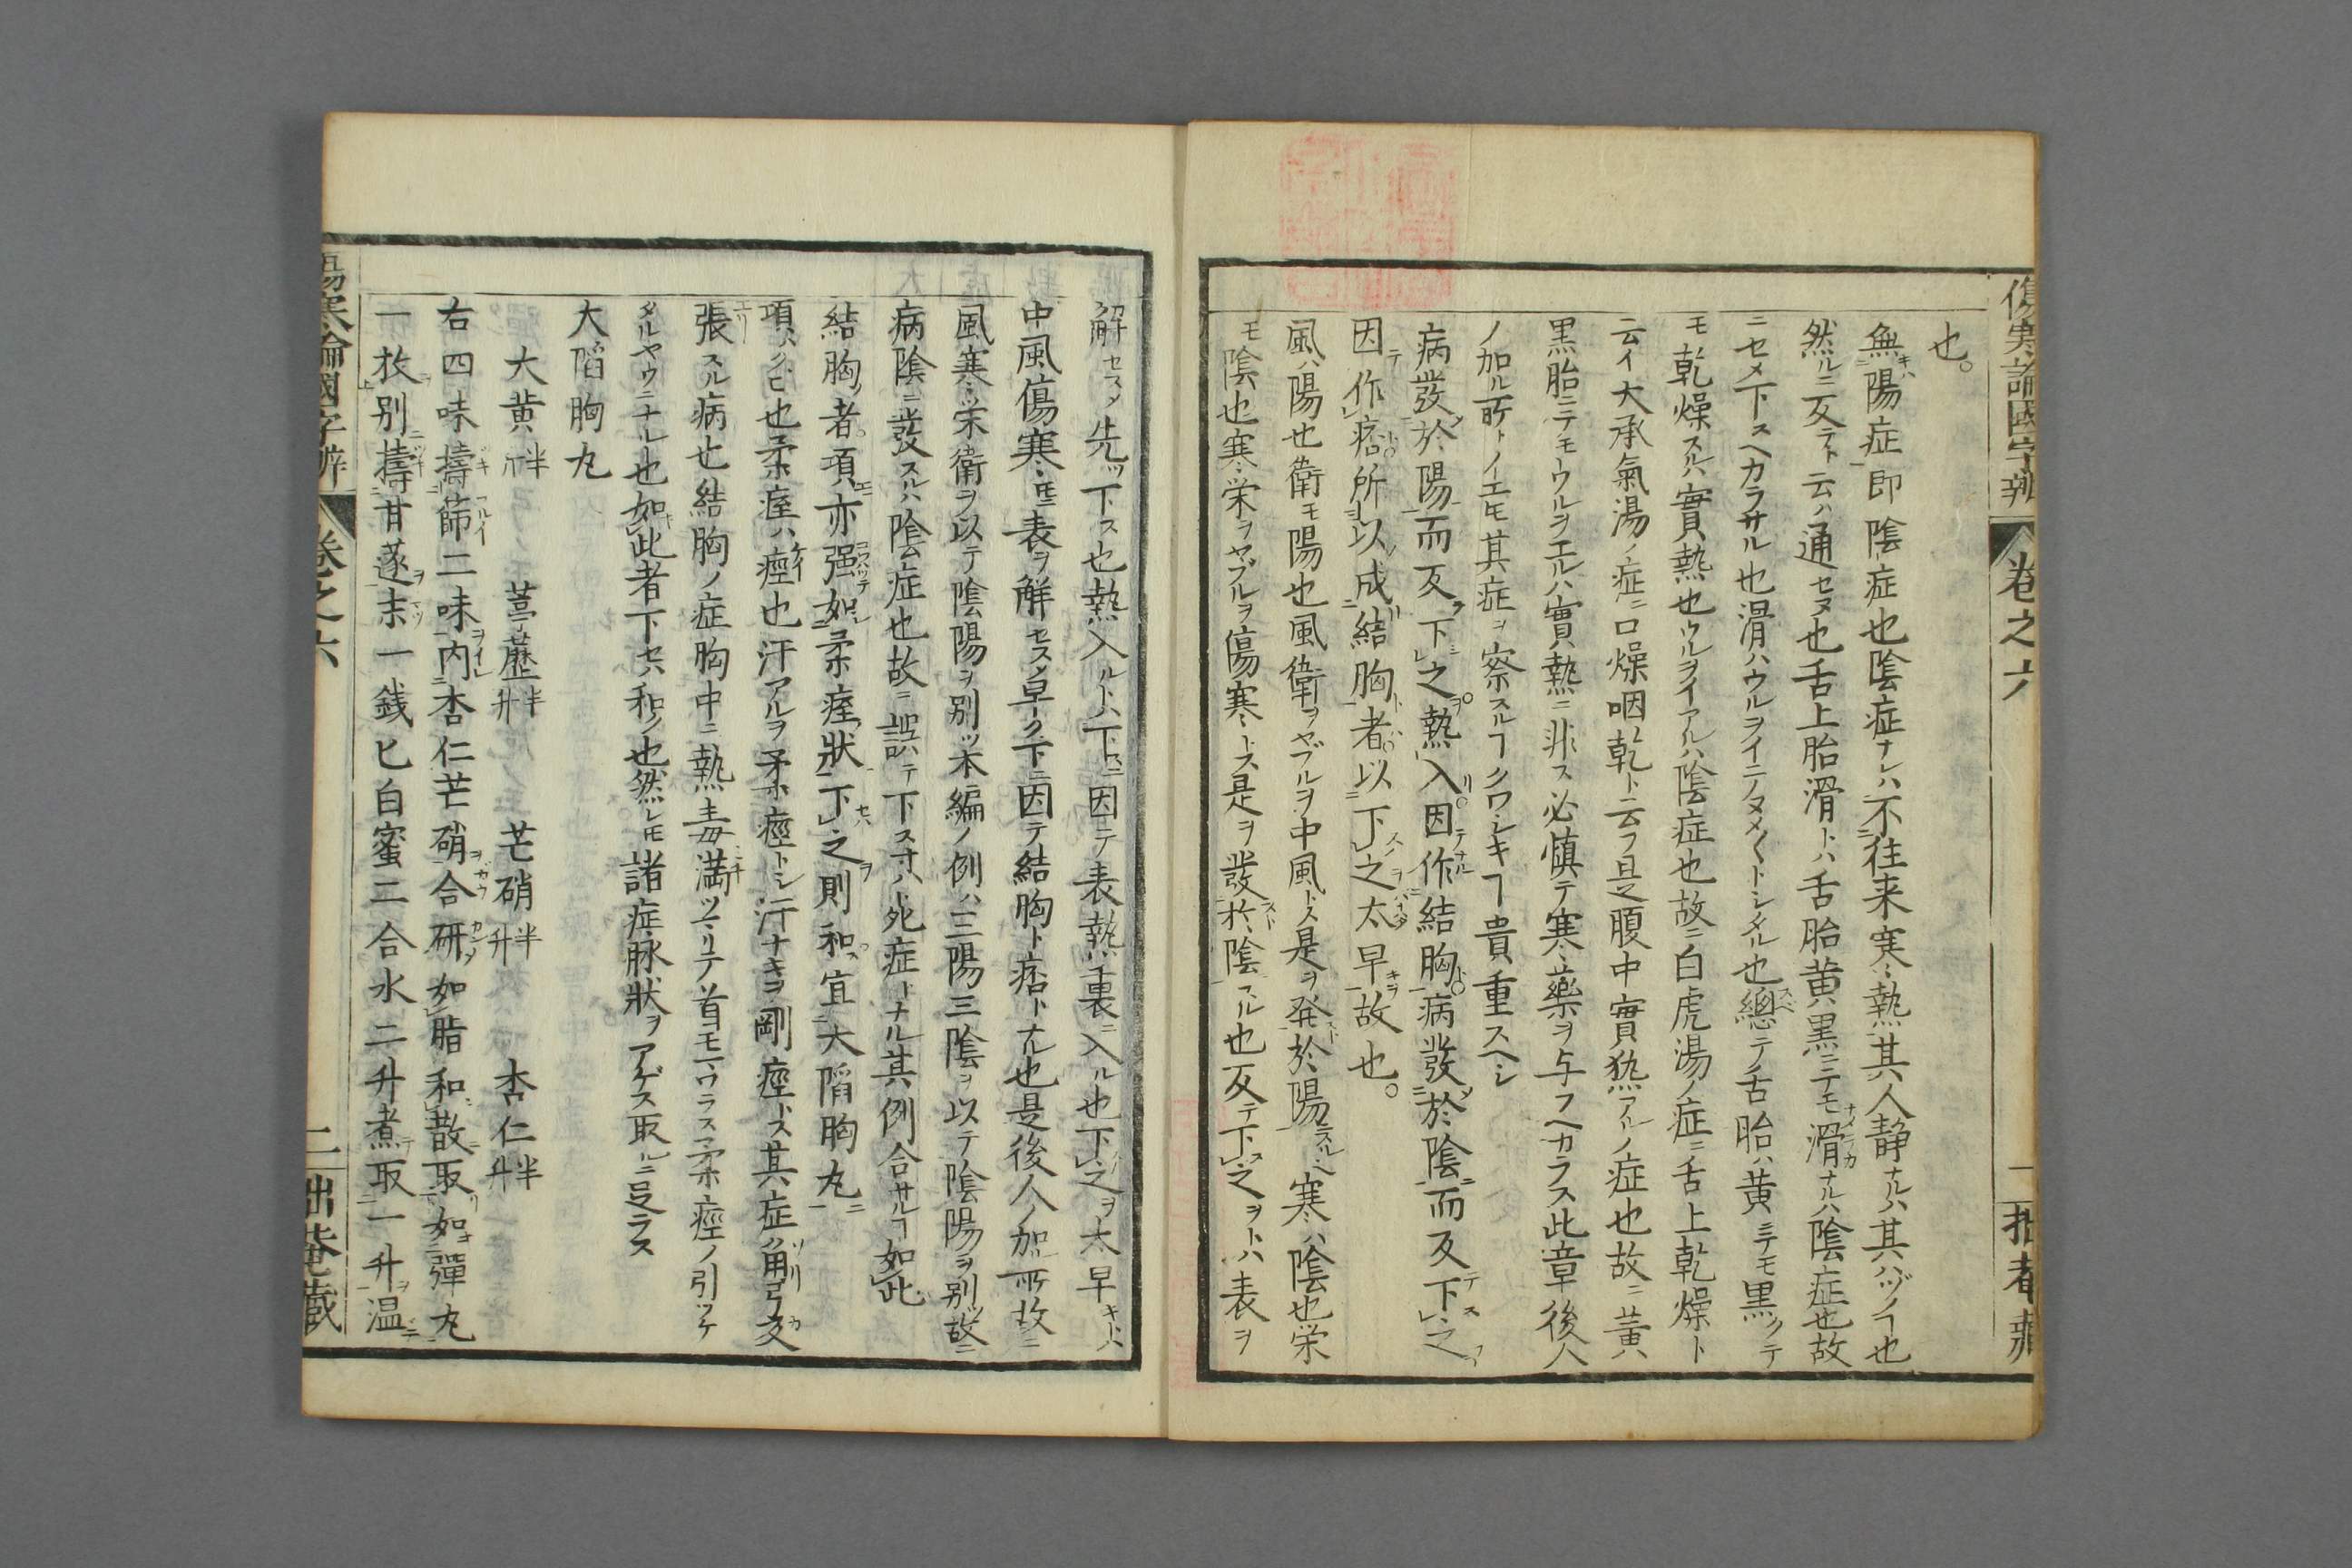 傷寒論國字辨 卷之六 一
也。
無陽症即陰症也陰症ナレハ不往来寒熱其人静ナルハ其ハヅイ也
然ルニ反テト云ハ通セヌ也舌上胎滑トハ舌胎黄黒ニテモ滑ナルハ陰症也故
ニセメ下スヘカラサル也滑ハウルヲイニノヌメ〱トシタル也總テノ舌胎ハ黄ニテモ黒クテ
モ乾燥スルハ實熱也ウルヲイアルハ陰症也故ニ白虎湯ノ症ニ舌上乾燥ト
云イ大承氣湯ノ症ニ口燥咽乾ト云フ是腹中實熱アルノ症也故ニ黄
黒胎ニテモウルヲエルハ實熱ニ非ス必慎テ寒薬ヲ与フヘカラス此章後人
ノ加ル所トノイエ𪜈其症ヲ察スルヿクワシキヿ貴重スヘシ
病發於陽而反下之熱入因作結胸病發於陰而反下之
因作痞所以成結胸者以下之太早故也。
風ハ陽也衛モ陽也風衛ヲヤブルヲ中風トス是ヲ発於陽トスル也寒ハ陰也栄
モ陰也寒栄ヲヤブルヲ傷寒トス是ヲ發於陰トスル也反テ下之ヲトハ表ヲ
解セスノ先ツ下ス也熱入ルトハ下ニ因テ表熱裏ニ入ル也下之ヲ太早キトハ
中風傷寒𪜈ニ表ヲ解セスノ早ク下ニ因テ結胸ト痞トナル也是後人ノ加ル所故ニ
風寒栄衛ヲ以テ陰陽ヲ別ツ本編ノ例ハ三陽三陰ヲ以テ陰陽ヲ別ツ故ニ
病陰ニ發スルハ陰症也故ニ誤テ下ス寸ハ死症トナル其例合サルヿ如此
結胸者項亦强如柔痓狀下之則和宜大陷胸丸
項ハクビ也柔痓ハ痙也汗アルヲ柔痙トシ汗ナキヲ剛痙トス其症角弓反
張スル病也結胸ノ症胸中ニ熱毒満ツマリテ首モマワラス柔痙ノ引ツケ
タルヤウニナル也如此者下セハ和ノ也然レ𪜈諸症脉狀ヲアゲス取ルニ足ラス
大陷胸丸
大黄半斤 葶藶半升 芒硝半升 杏仁半升
右四味擣篩二味内杏仁芒硝合研如脂和散取如彈丸
一枚别擣甘遂末一銭匕白蜜二合水二升煮取一升温
傷寒論國字辨 卷之六 二 拙菴蔵